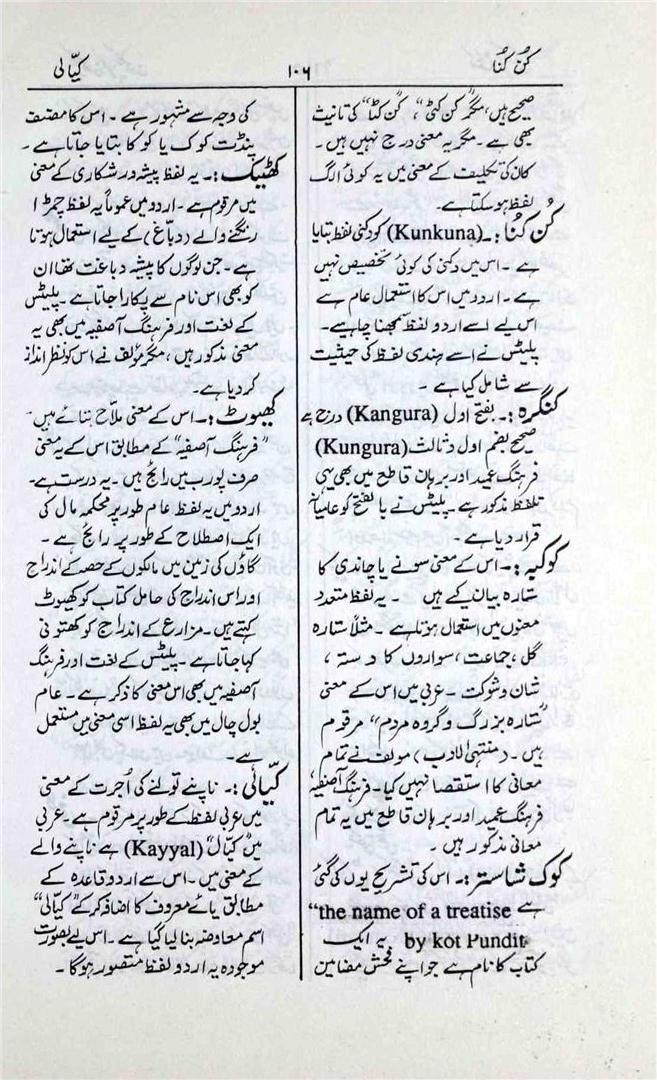 کُن کُنا
۱۰۶
کیّالی
صحیح ہیں، مگر "کن کٹی"، "کن کٹا" کی تانیث
بھی ہے۔ مگر یہ معنی درج نہیں ہیں۔
کان کی تکلیف کے معنی میں یہ کوئی الگ
لفظ ہو سکتا ہے۔
کُن کُنا:۔ (Kunkuna) کو دکنی لفظ بتایا
ہے۔ اس میں دکنی کی کوئی تخصیص نہیں
ہے۔ اردو میں اس کا استعمال عام ہے
اس لیے اسے اردو لفظ سمجھنا چاہیے۔
پلیٹس نے اسے ہندی لفظ کی حیثیت
سے شامل کیا ہے۔
کنگرہ:۔ بفتح اول (Kangura) درج ہے
صحیح بضم اول و ثالث (Kungura)
فرہنگ عمید اور برہان قاطع میں بھی یہی
تلفظ مذکور ہے۔ پلیٹس نے بالفتح کو عامیانہ
قرار دیا ہے۔
کوکبہ:۔ اس کے معنی سونے یا چاندی کا
ستارہ بیان کیے ہیں۔ یہ لفظ متعدد
معنوں میں استعمال ہوتا ہے۔ مثلاً ستارہ
گل، جماعت، سواروں کا دستہ،
شان و شوکت۔ عربی میں اس کے معنی
"ستارہ بزرگ و گروہ مردم" مرقوم
ہیں۔ (منتہی الادب) مولف نے تمام
معانی کا استقصا نہیں کیا۔ فرہنگ آصفیہ،
فرہنگ عمید اور برہان قاطع میں یہ تمام
معانی مذکور ہیں۔
کوک شاستر:۔ اس کی تشریح یوں کی گئی
ہے "the name of a treatise
by kot Pundit" یہ ایک
کتاب کا نام ہے جو اپنے فحش مضامین
کی وجہ سے مشہور ہے۔ اس کا مصنف
پنڈت کوک یا کو کا بتایا جاتا ہے۔
کھٹیک:۔ یہ لفظ پیشہ ور شکاری کے معنی
میں مرقوم ہے۔ اردو میں عموماً یہ لفظ چمڑا
رنگنے والے (دباغ) کے لیے استعمال ہوتا
ہے۔ جن لوگوں کا پیشہ دباغت تھا ان
کو بھی اس نام سے پکارا جاتا ہے۔ پلیٹس
کے لغت اور فرہنگ آصفیہ میں بھی یہ
معنی مذکور ہیں، مگر مؤلف نے اس کو نظر انداز
کر دیا ہے۔
کھیوٹ:۔ اس کے معنی ملاح بتائے ہیں
"فرہنگ آصفیہ" کے مطابق اس کے یہ معنی
صرف پورب میں رائج ہیں۔ یہ درست ہے۔
اردو میں یہ لفظ عام طور پر محکمہ مال کی
ایک اصطلاح کے طور پر رائج ہے۔
گاؤں کی زمین میں مالکوں کے حصہ کے اندراج
اور اس اندراج کی حامل کتاب کو کھیوٹ
کہتے ہیں۔ مزارع کے اندراج کو کھتونی
کہا جاتا ہے۔ پلیٹس کے لغت اور فرہنگ
آصفیہ میں بھی اس معنی کا ذکر ہے۔ عام
بول چال میں بھی یہ لفظ اسی معنی میں مستعمل
ہے۔
کیّالی:۔ ناپنے تولنے کی اُجرت کے معنی
میں عربی لفظ کے طور پر مرقوم ہے۔ عربی
میں "کیّال" (Kayyal) ہے ناپنے والے
کے معنی میں۔ اس سے اردو قاعدہ کے
مطابق یائے معروف کا اضافہ کر کے "کیّالی"
اسم معاوضہ بنا لیا گیا ہے۔ اس لیے بصورت
موجودہ یہ اردو لفظ متصور ہو گا۔